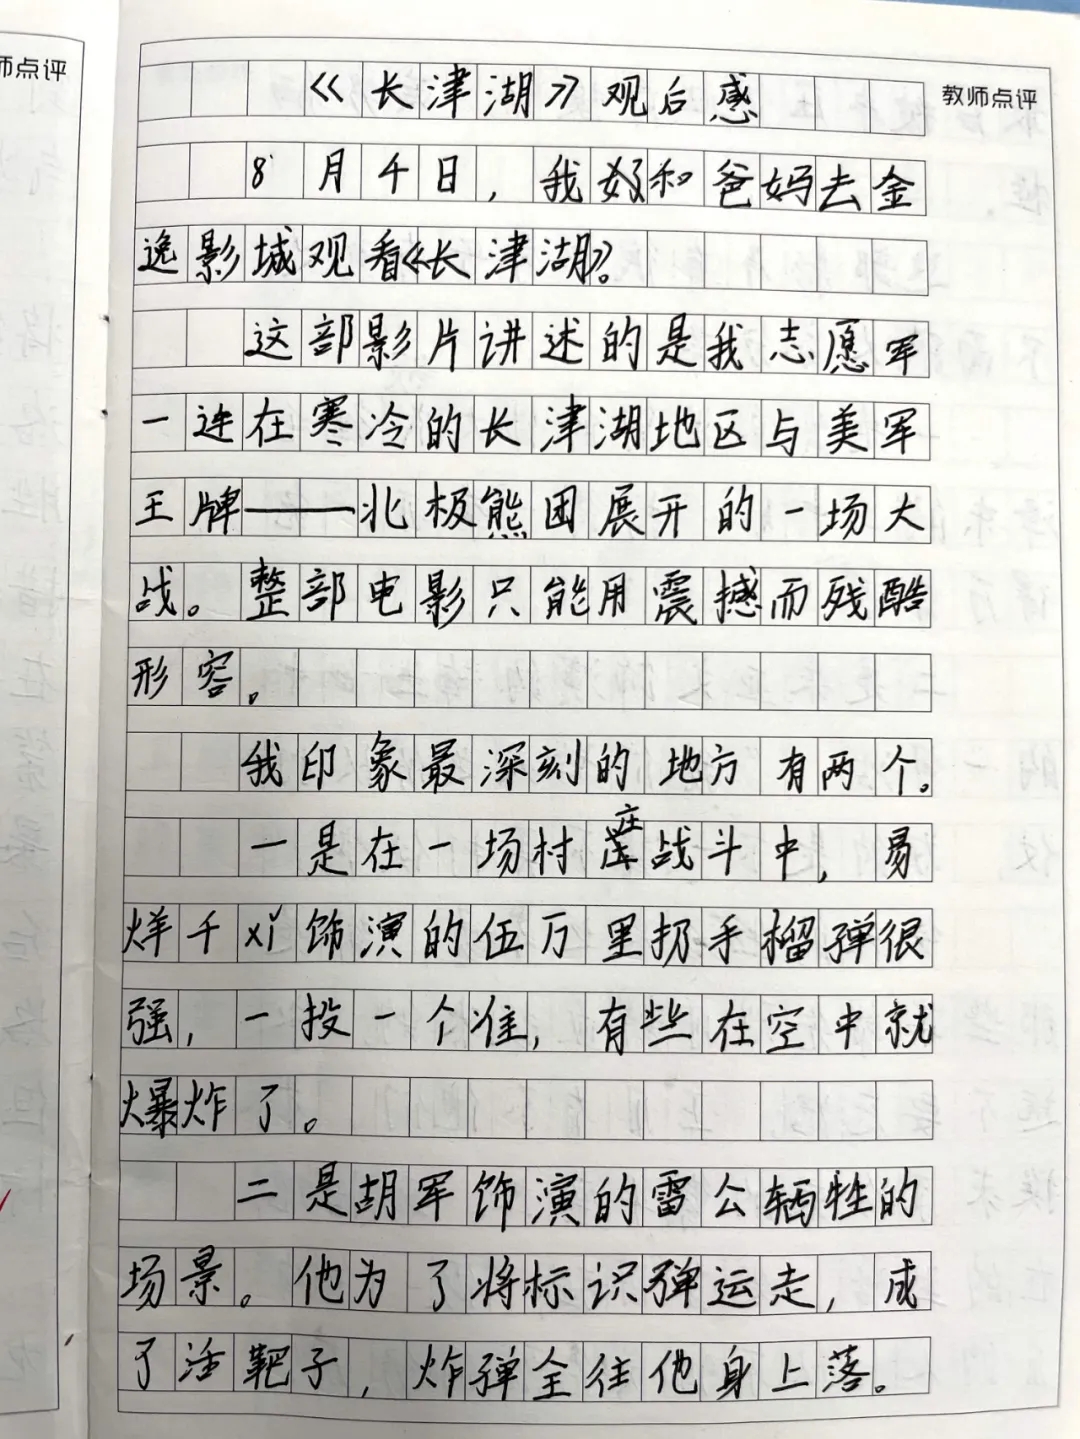 师点评
教师点评
《长津湖》观后感
8月4日，我好和爸妈去金
逸影城观看《长津湖》。
这部影片讲述的是我志愿军
一连在寒冷的长津湖地区与美军
王牌——北极熊团展开的一场大
战。整部电影只能用震撼而残酷
形容。
我印象最深刻的地方有两个。
一是在一场村庄战斗中，易
烊千xǐ饰演的伍万里扔手榴弹很
强，一投一个准，有些在空中就
爆炸了。
二是胡军饰演的雷公牺牲的
场景。他为了将标识弹运走，成
了活靶子，炸弹全往他身上落。